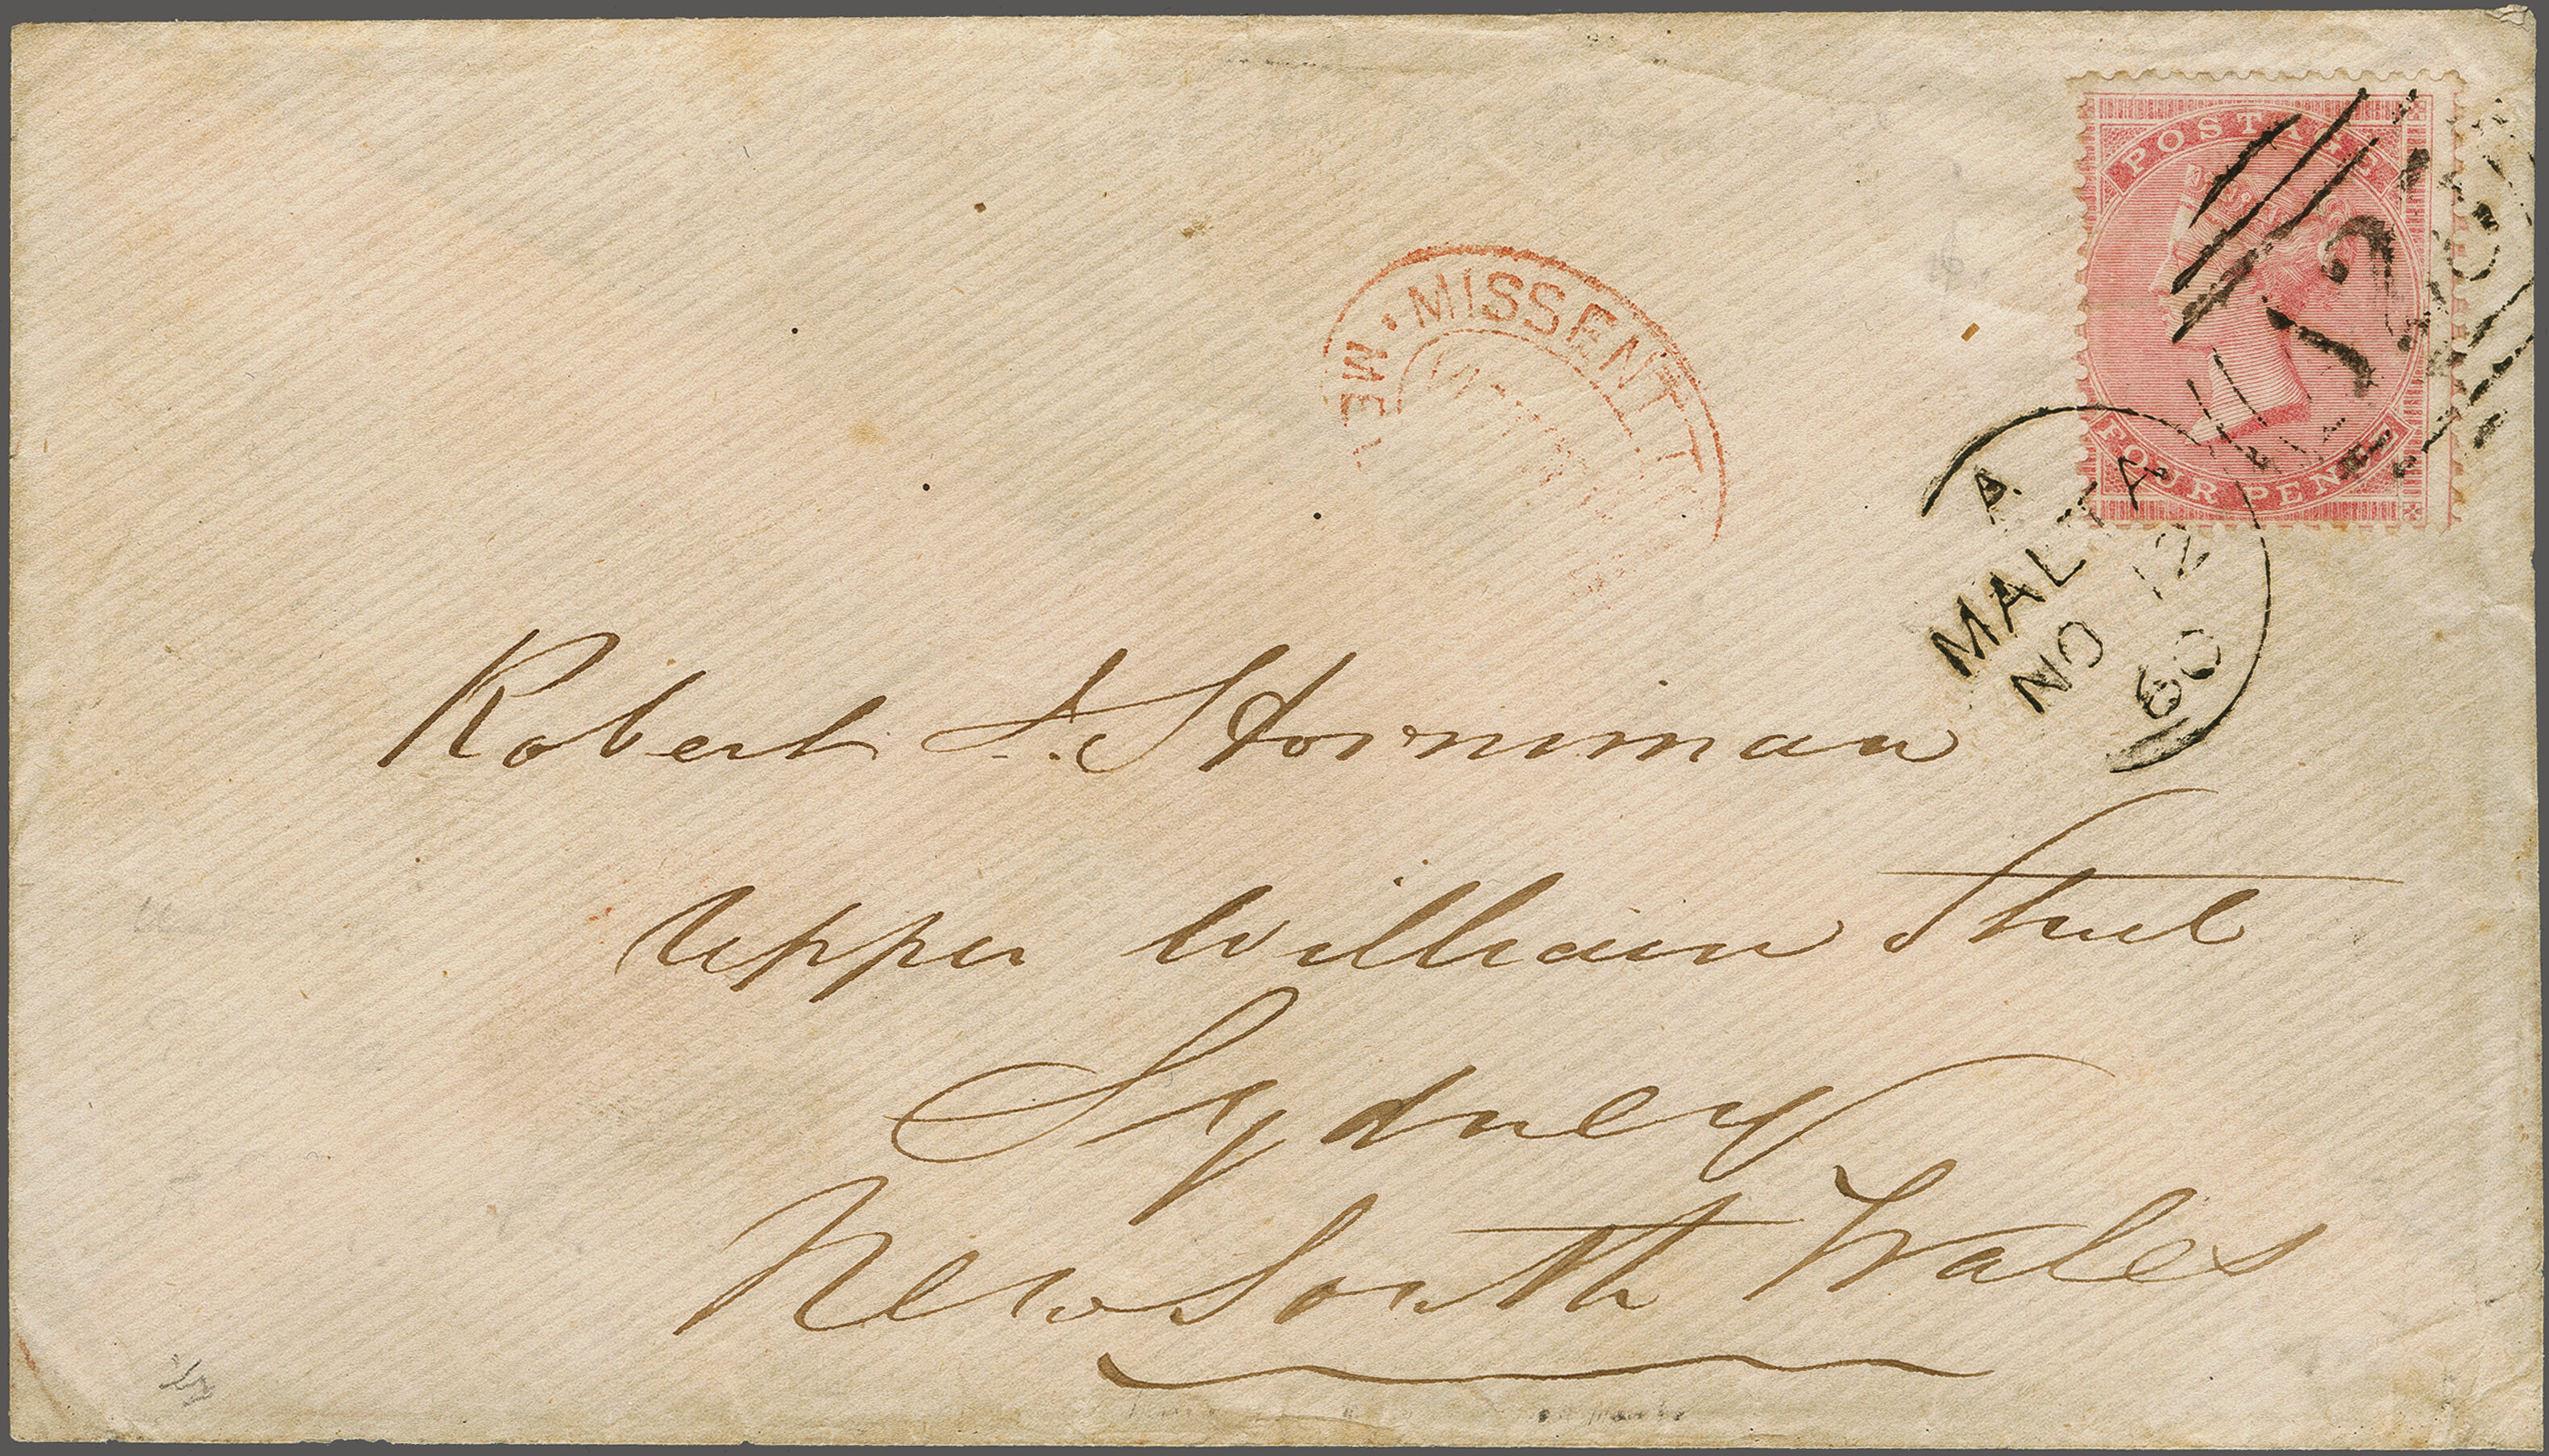 POSTAGE
FOUR PENCE
MISSENT T
A
MALTA
NO 12
60
Robert
Upper William Street
Sydney
New South Wales